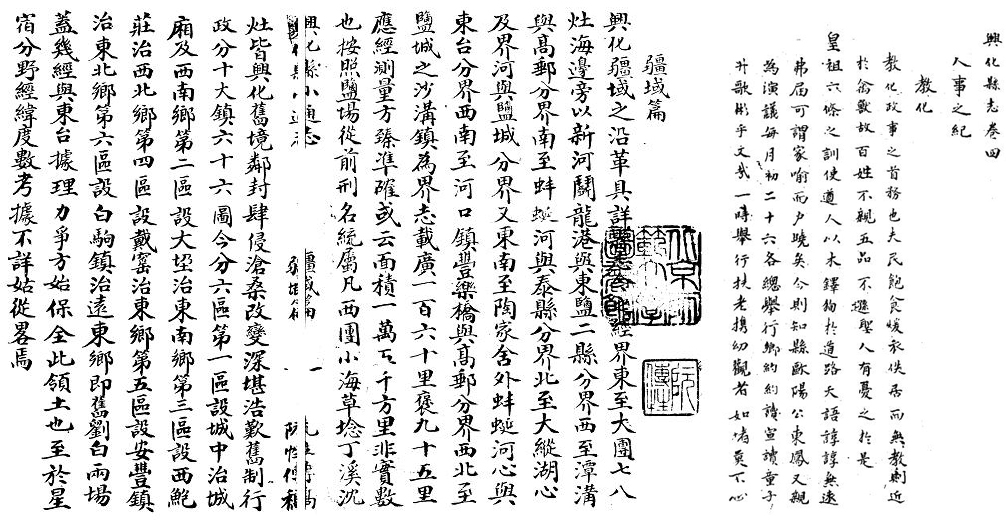 興化縣志卷四
人事之紀
教化
教化政事之首務也夫民飽食煖衣佚居而無教則近
於禽獸故百姓不親五品不遜聖人有憂之於是
皇祖六條之訓使遒人以木鐸徇於道路天語諄諄無遠
弗屆可謂家喻而户曉矣今則知縣歐陽公東鳳又親
為演議每月初二十六各總舉行鄉約約講宣讀童子
升歌彬乎文武一時舉行扶老携幼觀者如堵莫不心
疆域篇
興化疆域之沿革具詳 經界東至大團七八
灶海邊旁以新河鬭龍港與東鹽二縣分界西至潭溝
與高郵分界南至蚌蜒河與泰縣分界北至大縱湖心
及界河與鹽城分界又東南至陶家舍外蚌蜒河心與
東台分界西南至河口鎮豐樂橋與高郵分界西北至
鹽城之沙溝鎮為界志載廣一百六十里褒九十五里
應經測量方臻準確或云面積一萬 千方里非實數
也按照鹽場從前刑名統屬凡西團小海草埝丁溪沈
興化縣小通志
疆域篇
灶皆興化舊境鄰封肆侵滄桑改變深堪浩歎舊制行
政分十大鎮六十六圖今分六區第一區設城中治城
廂及西南鄉第二區設大垤治東南鄉第三區設西鮑
莊治西北鄉第四區設戴窰治東鄉第五區設安豐鎮
治東北鄉第六區設白駒鎮治遠東鄉即舊劉白兩場
蓋幾經與東台據理力爭方始保全此領土也至於星
宿分野經緯度數考據不詳姑從畧焉